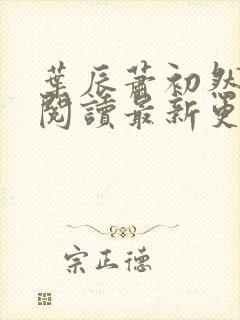 葉辰蕭初然
閱讀最新更
宗正德